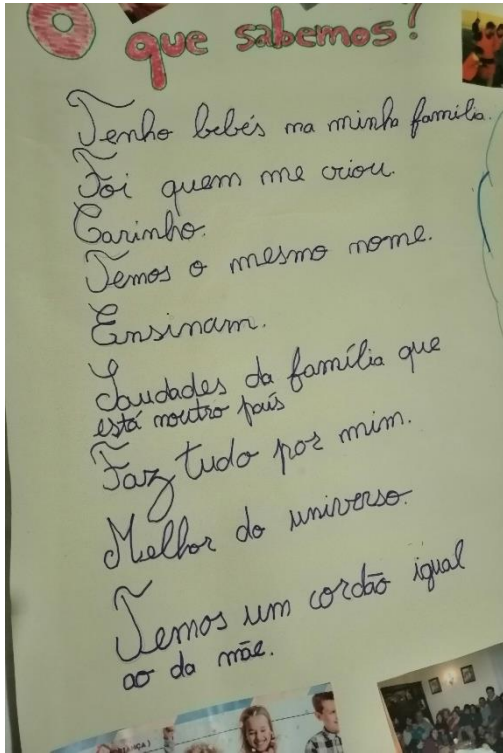 O que sabemos?
Tenho bebés na minha família.
Foi quem me criou.
Carinho.
Temos o mesmo nome.
Ensinam.
Saudades da família que
está noutro país
Faz tudo por mim.
Melhor do universo.
Temos um cordão igual
ao da mãe.